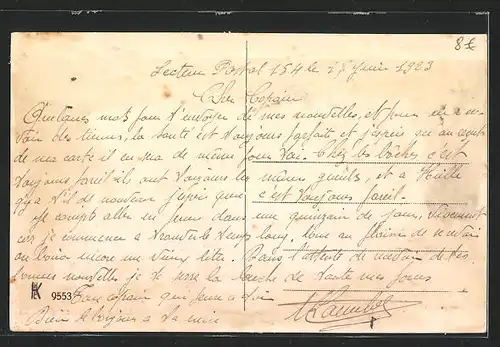 8£
Secteur Postal 154 le 27 Juin 1923
Cher Copain
Quelques mots pour t'envoyer de mes nouvelles, et pour en
des tiennes, la santé est toujours parfaite et j'espère qu'au reçu
de ma carte il en sera de même pour toi. Chez les bôches c'est
toujours pareil ils ont toujours les mêmes gueules, et a
qu'y a t'il de nouveau j'espère que c'est toujours pareil.
Je compte aller en perm dans une quinzaine de jours, vivement
car je commence a trouver le temps long, donc au plaisir de
boire encore un vieux litre. Dans l'attente de tes
bonnes nouvelles je te serre la de toute mes forces
Ton copain que pense a toi
Bien le bonjour a ta
K 9553